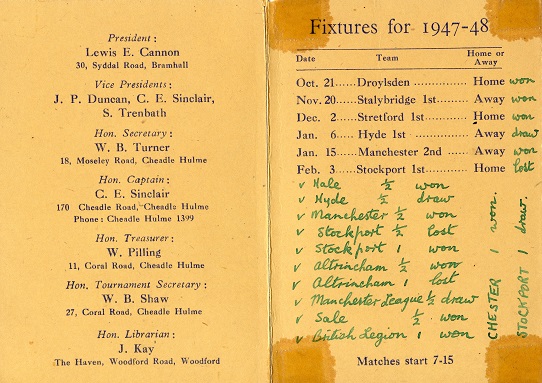 President :
Lewis E. Cannon
30, Syddal Road, Bramhall
Vice Presidents :
J. P. Duncan, C. E. Sinclair,
S. Trenbath
Hon. Secretary :
W. B. Turner
18, Moseley Road, Cheadle Hulme
Hon. Captain :
C. E. Sinclair
170 Cheadle Road, Cheadle Hulme
Phone : Cheadle Hulme 1399
Hon. Treasurer :
W. Pilling
11, Coral Road, Cheadle Hulme
Hon. Tournament Secretary :
W. B. Shaw
27, Coral Road, Cheadle Hulme
Hon. Librarian :
J. Kay
The Haven, Woodford Road, Woodford
Fixtures for 1947-48
Date Team Home or Away
Oct. 21......Droylsden ............... Home won
Nov. 20......Stalybridge 1st......... Away won
Dec. 2......Stretford 1st............ Home won
Jan. 6......Hyde 1st ............... Away draw
Jan. 15......Manchester 2nd ...... Away won
Feb. 3......Stockport 1st............ Home lost
v Hale ½ won
v Hyde ½ draw
v Manchester ½ won
v Stockport ½ lost
v Stockport 1 won
v Altrincham ½ won
v Altrincham 1 lost
v Manchester League ½ draw
v Sale ½ won
v British Legion 1 won
CHESTER 1 won.
STOCKPORT 1 draw.
Matches start 7-15